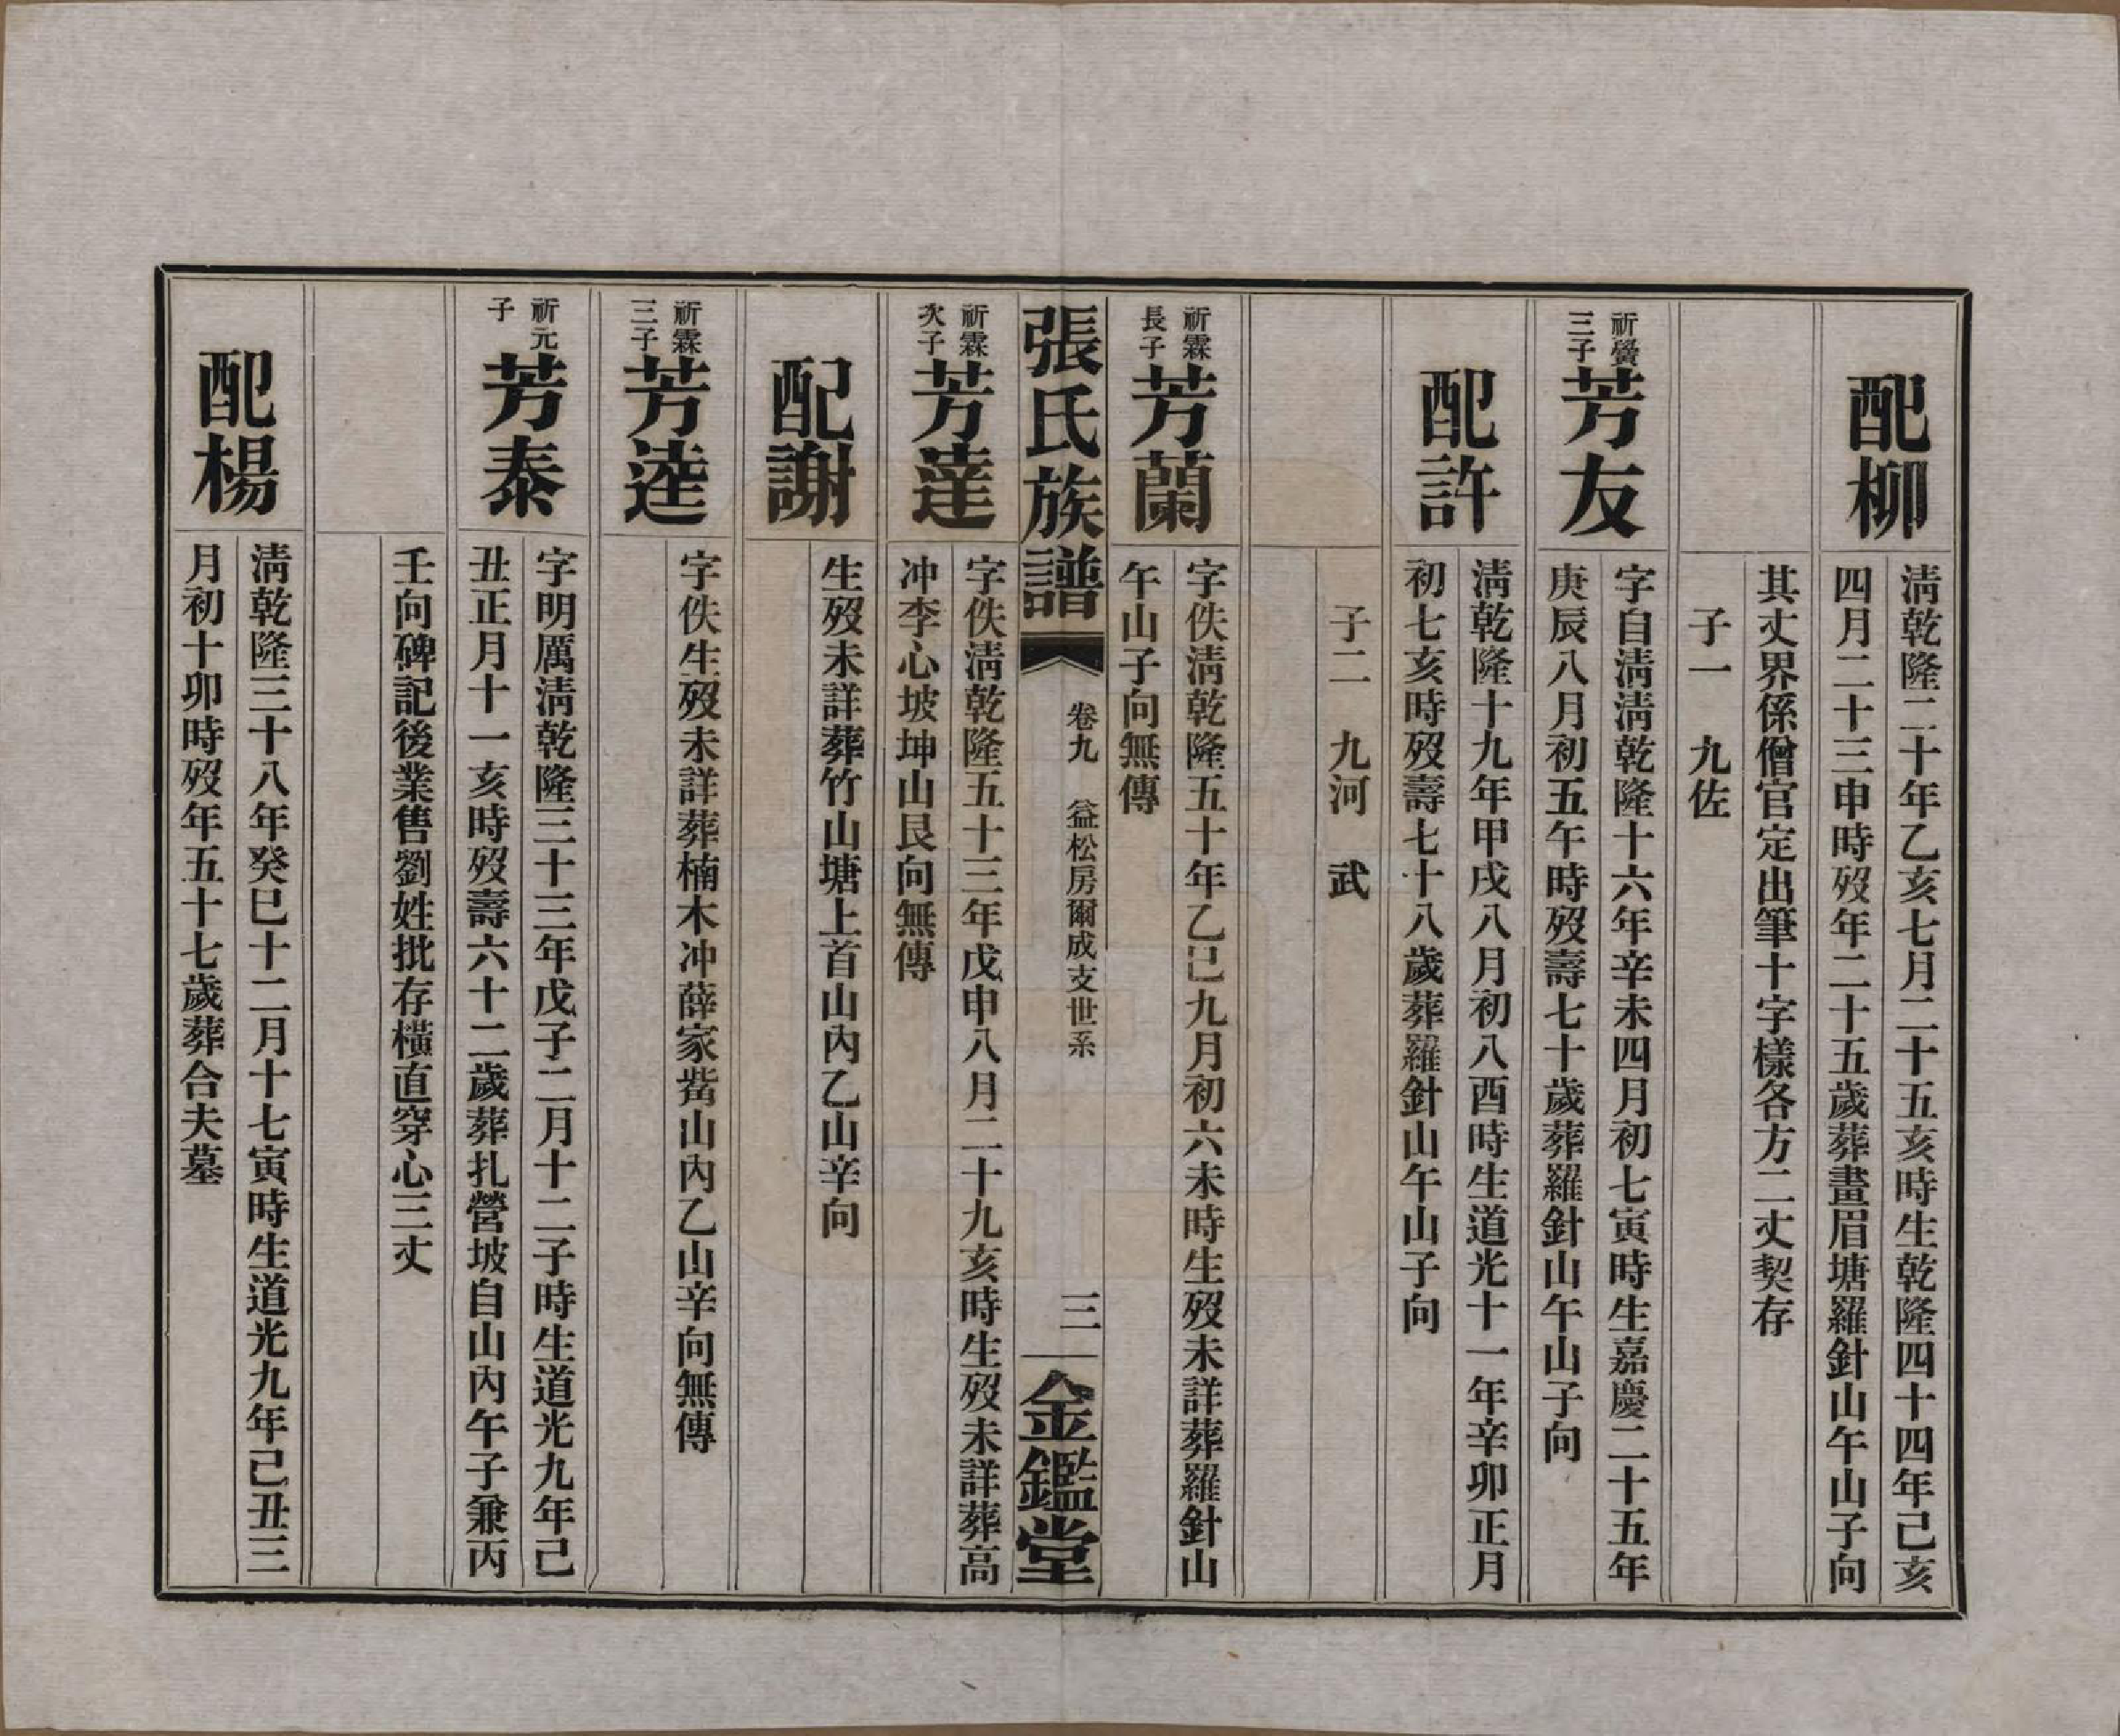 配柳
淸乾隆二十年乙亥七月二十五亥時生乾隆四十四年己亥
四月二十三申時歿年二十五歲葬畫眉塘羅針山午山子向
其丈界係僧官定出筆十字樣各方二丈契存
子一　九佐
祈黌
三子
芳友
字自淸淸乾隆十六年辛未四月初七寅時生嘉慶二十五年
庚辰八月初五午時歿壽七十歲葬羅針山午山子向
配許
淸乾隆十九年甲戌八月初八酉時生道光十一年辛卯正月
初七亥時歿壽七十八歲葬羅針山午山子向
子二　九河　武
祈霖
長子
芳蘭
字佚淸乾隆五十年乙巳九月初六未時生歿未詳葬羅針山
午山子向無傳
張氏族譜
卷九　益松房爾成支世系
三
金鑑堂
祈霖
次子
芳達
字佚淸乾隆五十三年戊申八月二十九亥時生歿未詳葬高
冲李心坡坤山艮向無傳
配謝
生歿未詳葬竹山塘上首山內乙山辛向
祈霖
三子
芳逵
字佚生歿未詳葬楠木冲薛家觜山內乙山辛向無傳
祈元
子
芳泰
字明厲淸乾隆三十三年戊子二月十二子時生道光九年己
丑正月十一亥時歿壽六十二歲葬扎營坡自山內午子兼丙
壬向碑記後業售劉姓批存橫直穿心三丈
配楊
淸乾隆三十八年癸巳十二月十七寅時生道光九年己丑三
月初十卯時歿年五十七歲葬合夫墓